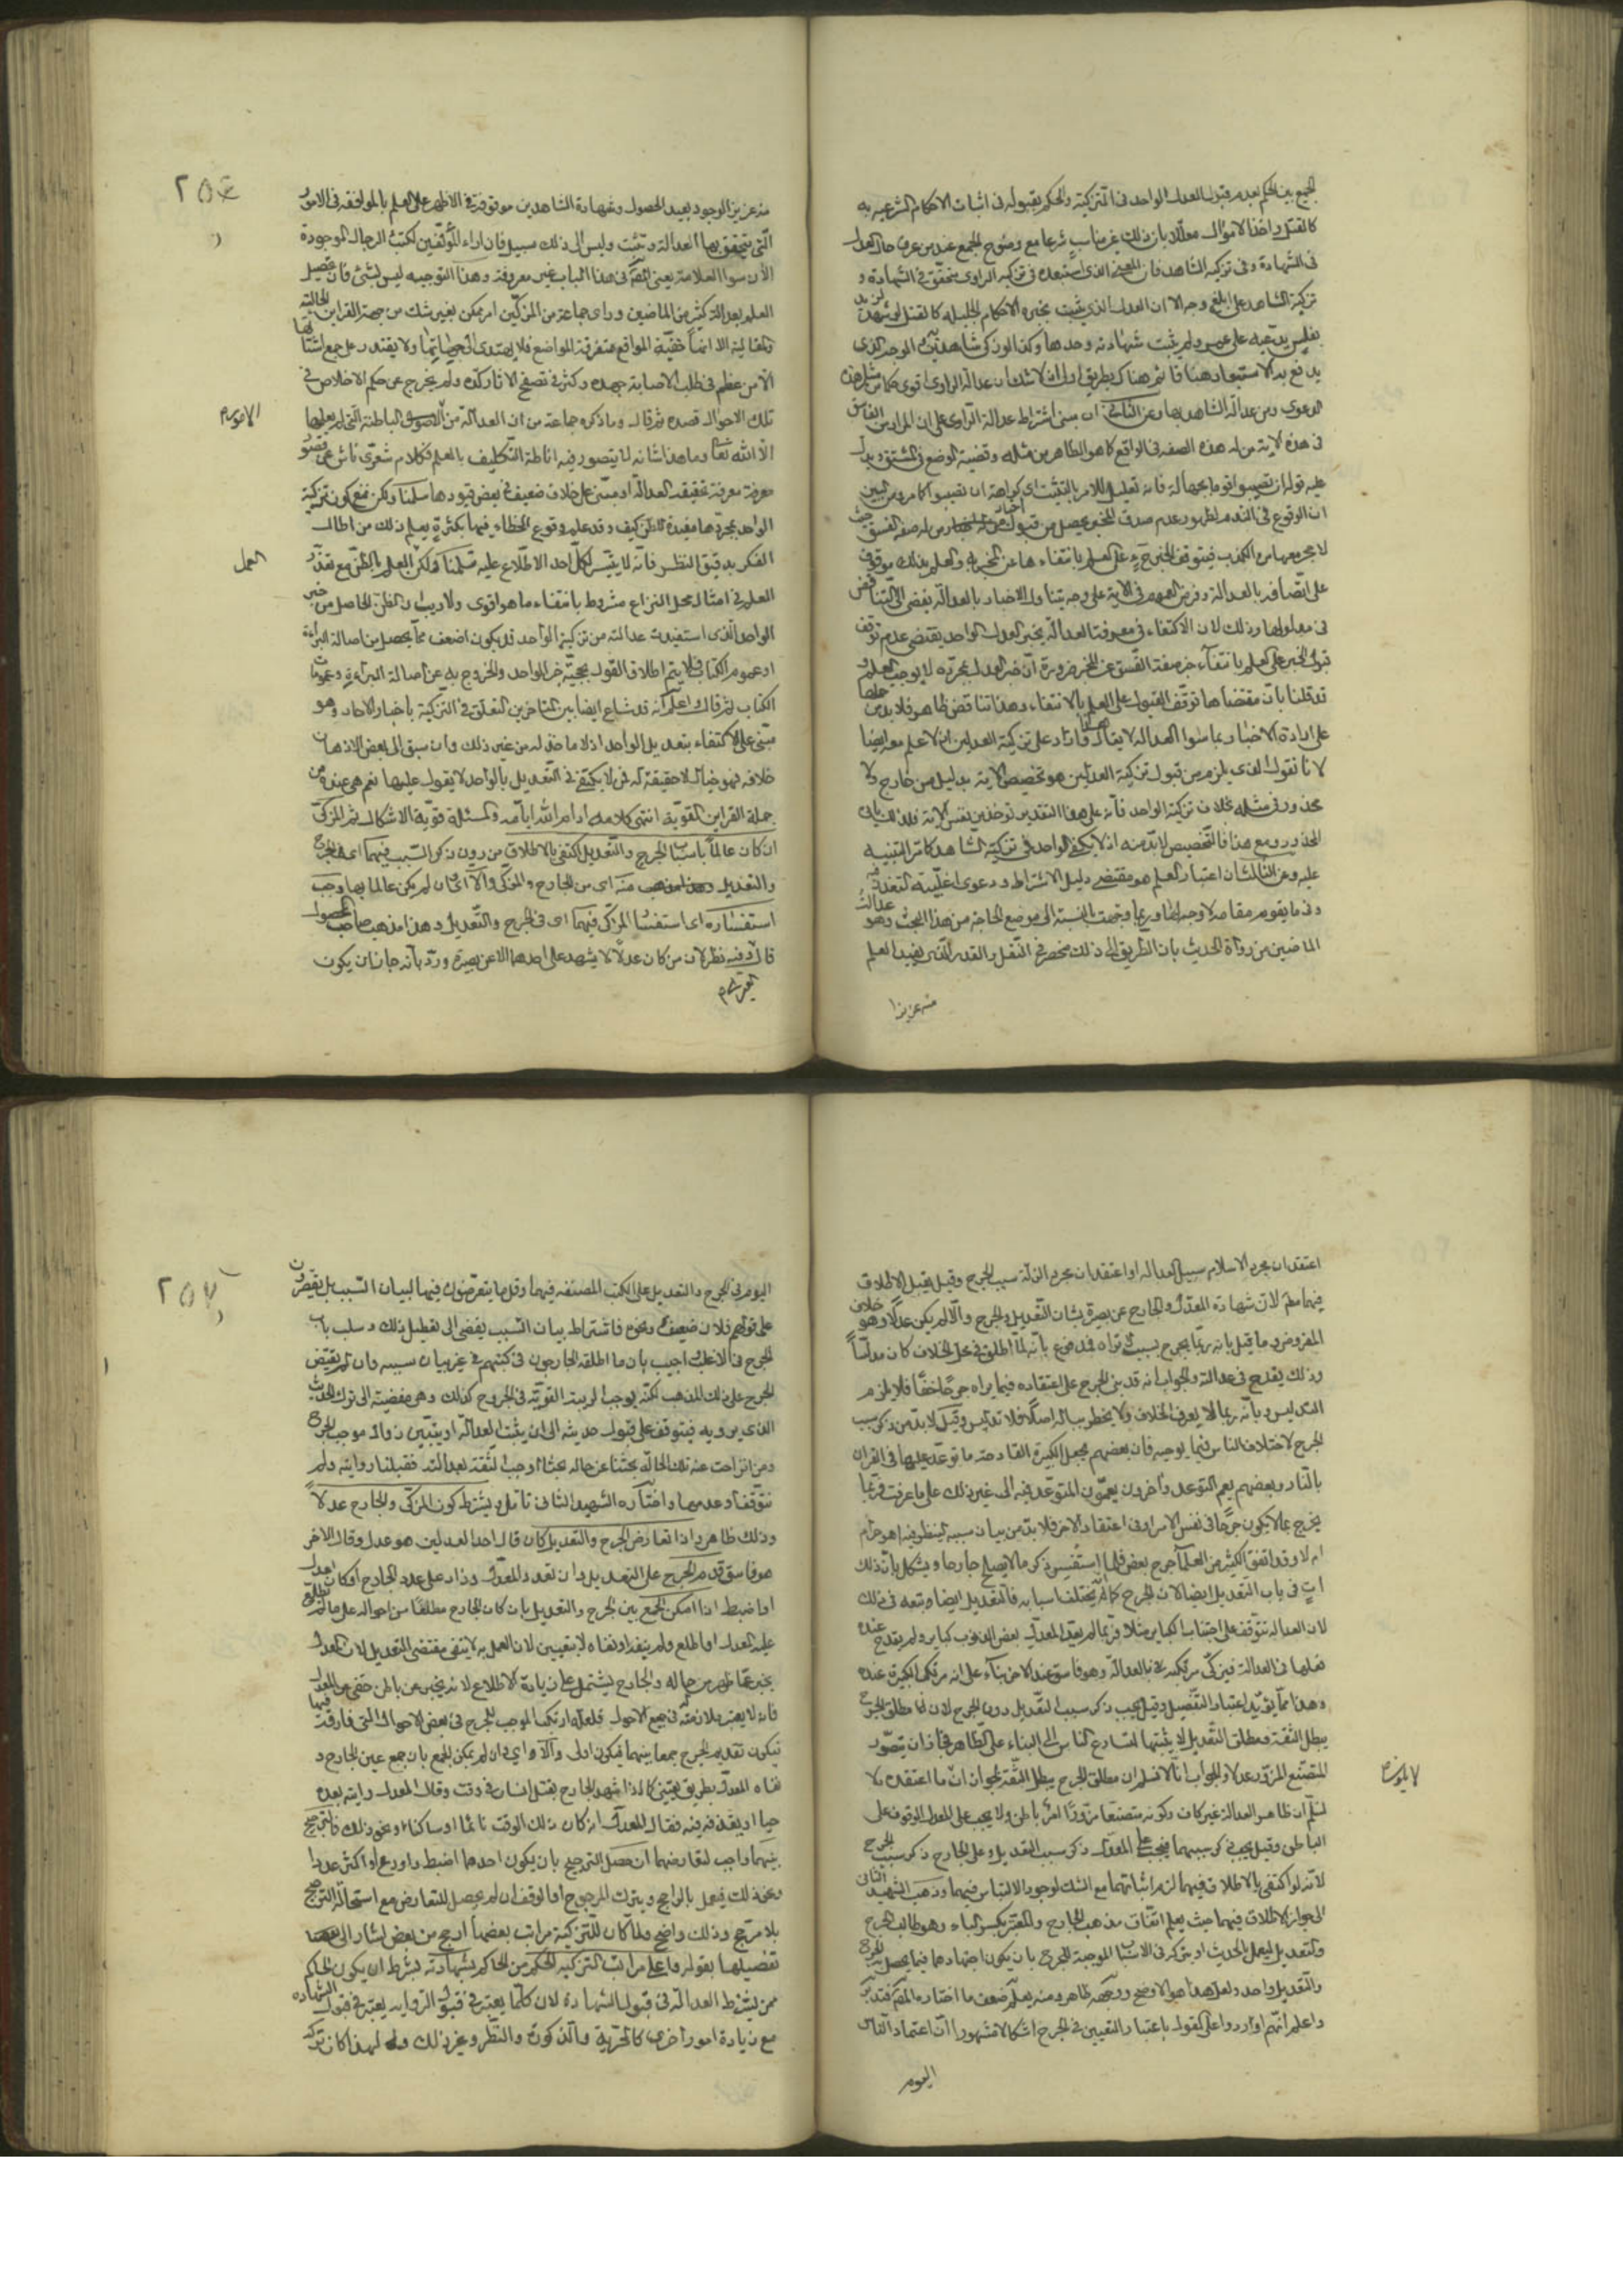 الجمع بين الحكم بعدم قبول العدل الواحد في التزكية والحكم بقبوله في اثبات الاحكام الشرعية به
كالقتل واخذ الاموال معللا بان ذلك غير مناسب شرعا مع وضوح الجمع عند من عرف حال العدل
في الشهادة وفي تزكية الشاهد فان المعنى الذي استبعده في تزكية الراوي متحقق في الشهادة و
تزكية الشاهد على ابلغ وجه الا ان العدل الذي يثبت بخبره الاحكام الجليلة كالقتل لو شهد لزيد
بفلس يدعيه على عمرو لم يثبت شهادته وحدها وكذا لو زكى شاهد
يدفع به الاستبعاد هنا قائم هناك بطريق اولى اذ لا شك ان عدالة الراوي اقوى
الدعوى ومن عدالة الشاهد بها وعن الثاني ان مبنى اشتراط عدالة الراوي على ان المراد من الفاسق
في هذه الاية من له هذه الصفة في الواقع كما هو الظاهر من مثله وقضية الوضع في المشتق ويدل
عليه قوله ان تصيبوا قوما بجهالة فانه تعليل للامر بالتثبت اي كراهة ان تصيبوا كما مر ومن البين
ان الوقوع في الندم لظهور عدم صدق المخبر يحصل من قبول اخبار من له صفة الفسق حيث
لا حجر معها من الكذب فيتوقف الخبر ح على العلم بانتفاءها عن المخبر به والعلم بذلك موقوف
على اتصافه بالعدالة وفرض العموم في الاية على وجه يتناول الاخبار بالعدالة يفضي الى التناقض
في مدلولها وذلك لان الاكتفاء في معرفة العدالة بخبر العدل الواحد يقتضي عدم توقف
قبول الخبر على العلم بانتفاء صفة الفسق عن المخبر ضرورة ان خبر العدل بمجرده لا يوجب العلم و
قد قلنا بان مقتضاها توقف القبول على العلم بالانتفاء وهذا تناقض ظاهر فلا بد من حملها
على ارادة الاخبار بما سوا العدالة لا يقال هذا وارد على تزكية العدلين اذ لا علم معه ايضا
لانا نقول الذي يلزم من قبول تزكية العدلين هو تخصيص الاية بدليل من خارج ولا
محذور في مثله بخلاف تزكية الواحد فانه على هذا التقدير يؤخذ من نفس الاية فلذلك ياتي
المحذور ومع هذا فالتخصيص لا بد منه اذ لا يكفي الواحد في تزكية الشاهد كما مر التنبيه
عليه وعن الثالث ان اعتبار العلم هو مقتضى دليل الاشتراط ودعوى اغلبية التعذر فيه
وفي ما يقوم مقامه لا وجه لها وربما وجهت بالنسبة الى موضع الحاجة من هذا البحث وهو عدالة
الماضين من رواة الحديث بان الطريق الى ذلك منحصر في النقل والقدر الذي يفيد العلم
منه عزيز ا
منه عزيز الوجود بعيد الحصول وشهادة الشاهدين موقوفة في الاظهر على العلم بالموافقة في الامور
التي يتحقق بها العدالة وتثبت وليس الى ذلك سبيل فان اراء المؤلفين لكتب الرجال الموجودة
الان سوا العلامة يعني اليه في هذا الباب غير معروفة وهذا التوجيه ليس بشئ فان تحصيل
العلم بعدالة كثير من الماضين وراي جماعة من المزكين امر ممكن بغير شك من جهة القراين الحالية
والمقالية الا انها خفية المواقع متفرقة المواضع فلا يهتدي الى جهاتها ولا يقتدر على جمع اشتاتها
الا من عظم في طلب الاصابة جهده وكثر في تصفح الاثار كده ولم يخرج عن حكم الاخلاص في
تلك الاحوال قصده ثم قال وما ذكره جماعة من ان العدالة من الامور الباطنة التي لم يعلمها
الا الله تعالى وما هذا شانه لا يتصور فيه اناطة التكليف بالعلم فكلام شعري ناش عن قصور
معرفة معرفة تحقيق العدالة او مبني على خلاف ضعيف في بعض قيودها سلمنا ولكن نمنع كون تزكية
الواحد بمجردها مفيدة للظن كيف وقد علم وقوع الخطاء فيها بكثرة يعلم ذلك من اطال
الفكر بدقيق النظر فانه لا يتيسر لكل احد الاطلاع عليه سلمنا ولكن العمل بالظن مع تعذر
العلم في امثال محل النزاع مشروط بانتفاء ما هو اقوى ولا ريب ان الظن الحاصل من خبر
الواحد الذي استفيدت عدالته من تزكية الواحد قد يكون اضعف مما يحصل من اصالة البراءة
او عموم الكتاب فلا يتم اطلاق القول بحجية خبر الواحد والخروج به عن اصالة البراءة وعمومات
الكتاب ثم قال واعلم انه قد شاع ايضا بين المتاخرين التعلق في التزكية باخبار الاحاد وهو
مبني على الاكتفاء بتعديل الواحد اذ لا ماخذ له من غير ذلك وان سبق الى بعض الاذهان
خلافه فهو خيال لا حقيقة له فمن لا يكتفي في التعديل بالواحد لا يعول عليها نعم هي عنده من
جملة القراين القوية انتهى كلامه ادام الله ايامه والمسئلة قوية الاشكال ثم المزكي
ان كان عالما باسباب الجرح والتعديل اكتفى بالاطلاق من دون ذكر السبب فيهما اي في الجرح
والتعديل منه اي من الجارح والمزكي والا اي ان لم يكن عالما بها وجب
استفساره اي استفسار المزكي فيهما اي في الجرح والتعديل وهذا مذهب صاحب المحصول
قال وفيه نظر لان من كان عدلا لا يشهد على احدهما الا عن بصيرة ورد بانه جاز ان يكون
الامور
العمل
٢٥٦
اعتقد ان مجرد الاسلام سبيل العدالة او اعتقد ان مجرد الزلة سبب الجرح وقيل يقبل الاطلاق
فيهما لان شهادة المعدل والجارح عن بصيرة بشان التعديل والجرح والا لم يكن عدلا وهو خلاف
المفروض وما قيل بانه ربما يجرح بسبب يراه فمدفوع بانه لما اطلق في محل الخلاف كان مدلسا
وذلك يقدح في عدالته والجواب انه قد بنى الجرح على اعتقاده فيما يراه جرحا حقا فلا يلزم
التدليس وبانه ربما لا يعرف الخلاف ولا يخطر بباله اصلا فلا تدليس وقيل لا بد من ذكر سبب
الجرح لاختلاف الناس فيما يوجبه فان بعضهم يجعل الكبيرة القادحة ما توعد عليها في القران
بالنار وبعضهم يعم التوعد واخرون يعممون المتوعد فيه الى غير ذلك على ما عرفت فربما
يخرج بما لا يكون جرحا في نفس الامر او في اعتقاد الاخر فلا بد من بيان سببه لينظر فيه اهو جرح
ام لا وقد اتفق لكثير من العلما جرح بعض فلما استفسر ذكر ما لا يصلح جارحا ويشكل بان ذلك
ات في باب التعديل ايضا لان الجرح كما يختلف اسبابه فالتعديل ايضا يتبعه في ذلك
لان العدالة تتوقف على اجتناب الكباير مثلا فربما لم يعد المعدل بعض الذنوب كباير ولم يقدح عنده
فعلها في العدالة فيزكي مرتكبه بالعدالة وهو فاسق عند الاخر بناء على انه مرتكب الكبيرة عنده
وهذا مما يؤيد اعتبار التفصيل وقيل يجب ذكر سبب التعديل دون الجرح لان مطلق الجرح
يبطل الثقة ومطلق التعديل لا يثبتها لتسارع الناس الى البناء على الظاهر فجاز ان يتصور
المتصنع المزور عدلا والجواب انا لا نسلم ان مطلق الجرح يبطل الثقة لجواز ان ما اعتقده لا
نسلم ان ظاهر العدالة غير كاف وكونه متصنعا مزورا امر باطن ولا يجب على المعدل الوقوف على
الباطن وقيل يجب ذكر سببهما فيجب على المعدل ذكر سبب التعديل وعلى الجارح ذكر سبب الجرح
لانه لو اكتفى بالاطلاق فيهما لزم اثباتهما مع الشك لوجود الالتباس فيهما وذهب الشهيد الثاني
الى جواز الاطلاق فيهما حيث يعلم اتفاق مذهب الجارح والمعتبر بكسر الباء وهو طالب الجرح
والتعديل ليعمل بالحديث او يتركه في الاسباب الموجبة للجرح بان يكون اجتهادهما فيما يحصل به الجرح
والتعديل واحد ولعل هذا هو الاوضح ووجهه ظاهر ومنه يعلم ضعف ما اختاره المص فتدبر
واعلم انهم اوردوا على القول باعتبار التعيين في الجرح اشكالا مشهورا ان اعتماد الناس
اليوم
اليوم في الجرح والتعديل على الكتب المصنفة فيهما وقل ما يتعرضون فيها لبيان السبب بل يقتصرون
على قولهم فلان ضعيف ونحوه فاشتراط بيان السبب يفضي الى تعطيل ذلك وسلب باب
الجرح في الاغلب اجيب بان ما اطلقه الجارحون في كتبهم في غير بيان سببه وان لم يقتض
الجرح على ذلك المذهب لكنه يوجب الريبة القوية في الجروح كذلك وهي مفضية الى ترك الحديث
الذي يرويه فيتوقف على قبول حديثه الى ان يثبت العدالة او يتبين زوال موجب الجرح
ومن انزاحت عنه تلك الحالة بحثنا عن حاله بحثا اوجب الثقة بعدالته فقبلنا روايته ولم
نتوقف او عدمها واختاره الشهيد الثاني تامل ويشترط كون المزكي والجارح عدلا
وذلك ظاهر واذا تعارض الجرح والتعديل كان قال احد العدلين هو عدل وقال الاخر
هو فاسق قدم الجرح على التعديل وان تعدد المعدل وزاد على عدد الجارح او كان اعدل
او اضبط اذا امكن الجمع بين الجرح والتعديل بان كان الجارح مطلعا من احواله على ما لم يطلع
عليه المعدل او اطلع ولم ينفه او نفاه لا بتعيين لان العمل به لا ينفى مقتضى التعديل لان المعدل
يخبر عما ظهر من حاله والجارح يشتمل على زيادة الاطلاع لانه يخبر عن باطن خفي من المعدل
فانه لا يعتبر ملازمته في جميع الاحوال فلعله ارتكب الموجب للجرح في بعض الاحوال التي فارقه فيها
فيكون تقديم الجرح جمعا بينهما فيكون اولى والا اي وان لم يمكن الجمع بان جمع عين الجارح و
نفاه المعدل بطريق يقيني كما اذا شهد الجارح بقتل انسان في وقت وقال المعدل رايته بعده
حيا او يقذفه فيه فقال المعدل انه كان ذلك الوقت نائما او ساكتا ونحو ذلك فالترجيح
بينهما واجب لتعارضهما ان حصل الترجيح بان يكون احدهما اضبط واورع او اكثر عددا
ونحو ذلك فيعمل بالراجح ويترك المرجوح او الوقف ان لم يحصل للتعارض مع استحالة الترجيح
بلا مرجح وذلك واضح ولما كان للتزكية مراتب بعضها ارجح من بعض اشار الى
تفصيلها بقوله واعلى مراتب التزكية الحكم من الحاكم بشهادته بشرط ان يكون الحاكم
ممن يشترط العدالة في قبول الشهادة لان كلما يعتبر في قبول الرواية يعتبر في قبول الشهادة
مع زيادة امور اخرى كالحرية والذكورة والنظر وغير ذلك ولهذا كان تزكية
٢٥٧